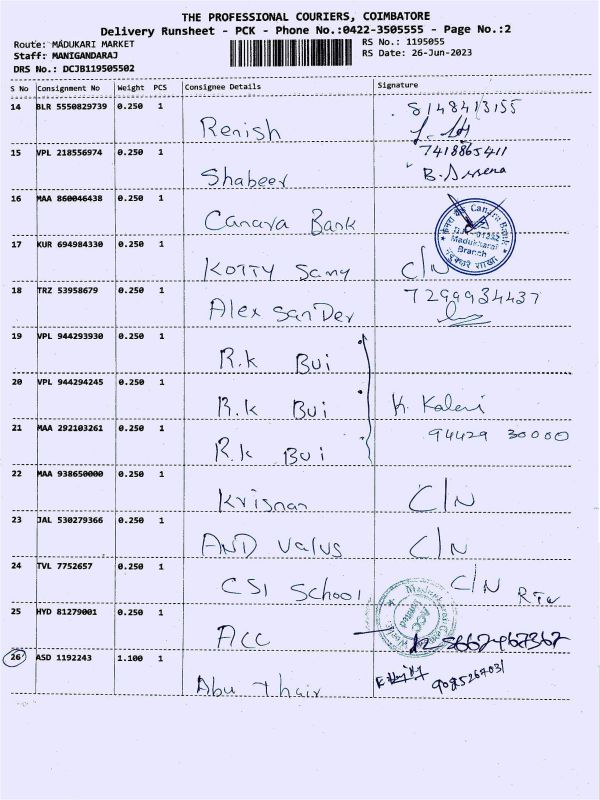 THE PROFESSIONAL COURIERS, COIMBATORE
Delivery Runsheet - PCK - Phone No.:0422-3505555 - Page No.:2
Route: MADUKARI MARKET
RS No.: 1195055
Staff: MANIGANDARAJ
RS Date: 26-Jun-2023
DRS No.: DCJB119505502
S No Consignment No Weight PCS Consignee Details Signature
14 BLR 5550829739 0.250 1 Renish 8148413155
15 VPL 218556974 0.250 1 Shabeer 7418865411
B.
16 MAA 860046438 0.250 1 Canara Bank
Canara Bank
Madukkarai
Branch
17 KUR 694984330 0.250 1 Kotty Samy C/N
18 TRZ 53958679 0.250 1 Alex sanDer 7299934437
19 VPL 944293930 0.250 1 R.k Bui
20 VPL 944294245 0.250 1 R.k Bui K. Kaleni
21 MAA 292103261 0.250 1 R.k Bui 94429 30000
22 MAA 938650000 0.250 1 Krisnan C/N
23 JAL 530279366 0.250 1 AND Valus C/N
24 TVL 7752657 0.250 1 CSI School C/N
25 HYD 81279001 0.250 1 ACC
ACC
Limited
26 ASD 1192243 1.100 1 Abu Thair